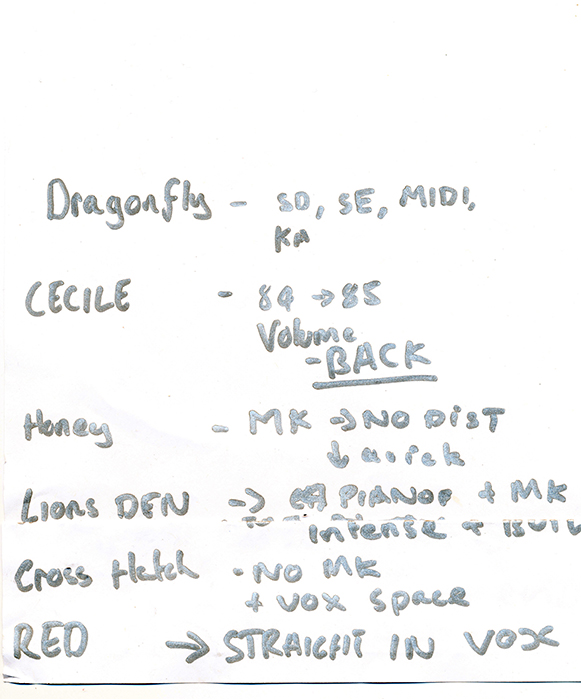 Dragonfly - SD, SE, MIDI,
KM
CECILE - 84 → 85
Volume
- BACK
Honey - MK → NO DIST
↓ quick
Lions DEN → PIANO + MK
intense +
Cross Hatch - NO MK
+ VOX space
RED → STRAIGHT IN VOX